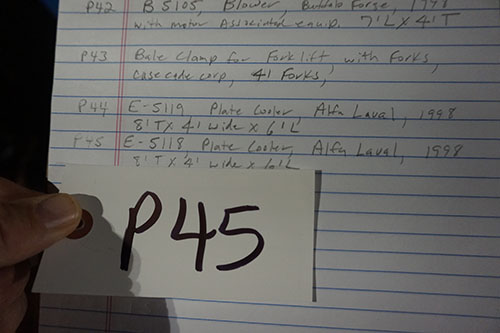 P42 B 5105, Blower, Buffalo Forge, 1998
with motor Associated equip. 7'L X 4'T
P43 Bale Clamp for Fork lift, with Forks,
Cascade corp, 4' Forks,
P44 E-5119 Plate Cooler, Alfa Laval, 1998
8'T X 4' wide x 6'L
P45 E-5118, Plate Cooler, Alfa Laval, 1998
8'T X 4' wide x 6'L
P45